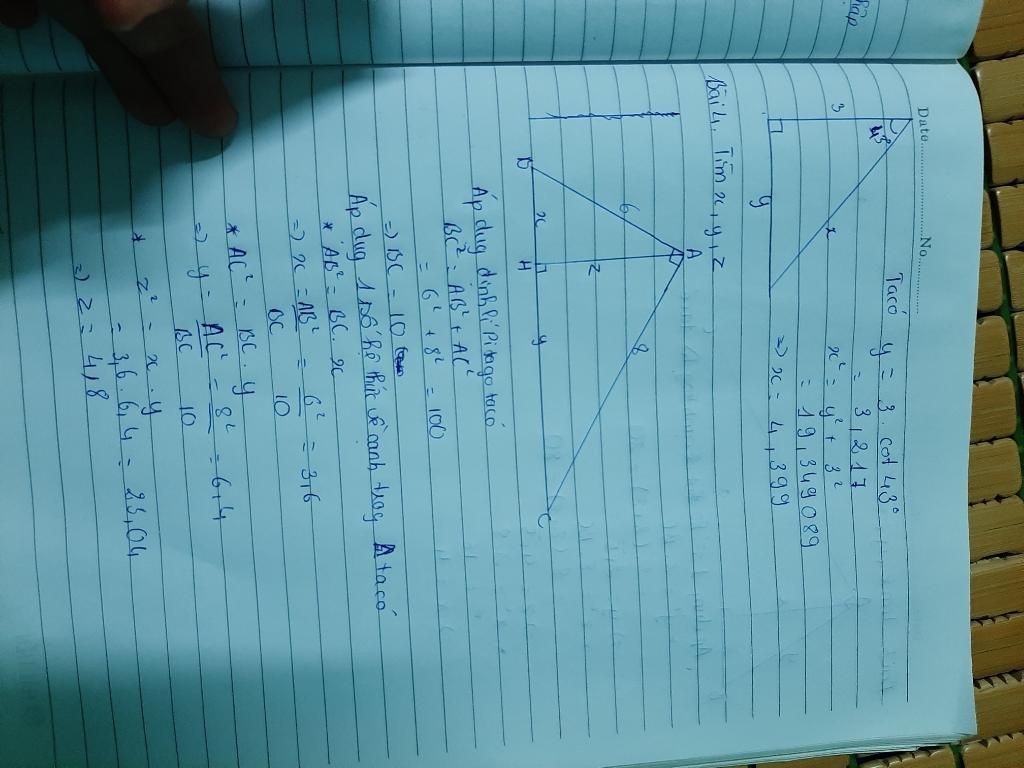 Date............No............
3
43°
x
y
Ta có y = 3 . cot 43°
= 3,217
x² = y² + 3²
= 19,349089
=> x = 4,399
Bài 4. Tìm x, y, z
A
6
8
z
B
x
H
y
C
Áp dụg định lí Pitago ta có
BC² = AB² + AC²
= 6² + 8² = 100
=> BC = 10
Áp dụg 1 số hệ thức về cạnh trog Δ ta có
* AB² = BC . x
=> x = AB²/BC = 6²/10 = 3,6
* AC² = BC . y
=> y = AC²/BC = 8²/10 = 6,4
* z² = x . y
= 3,6 . 6,4 = 23,04
=> z = 4,8